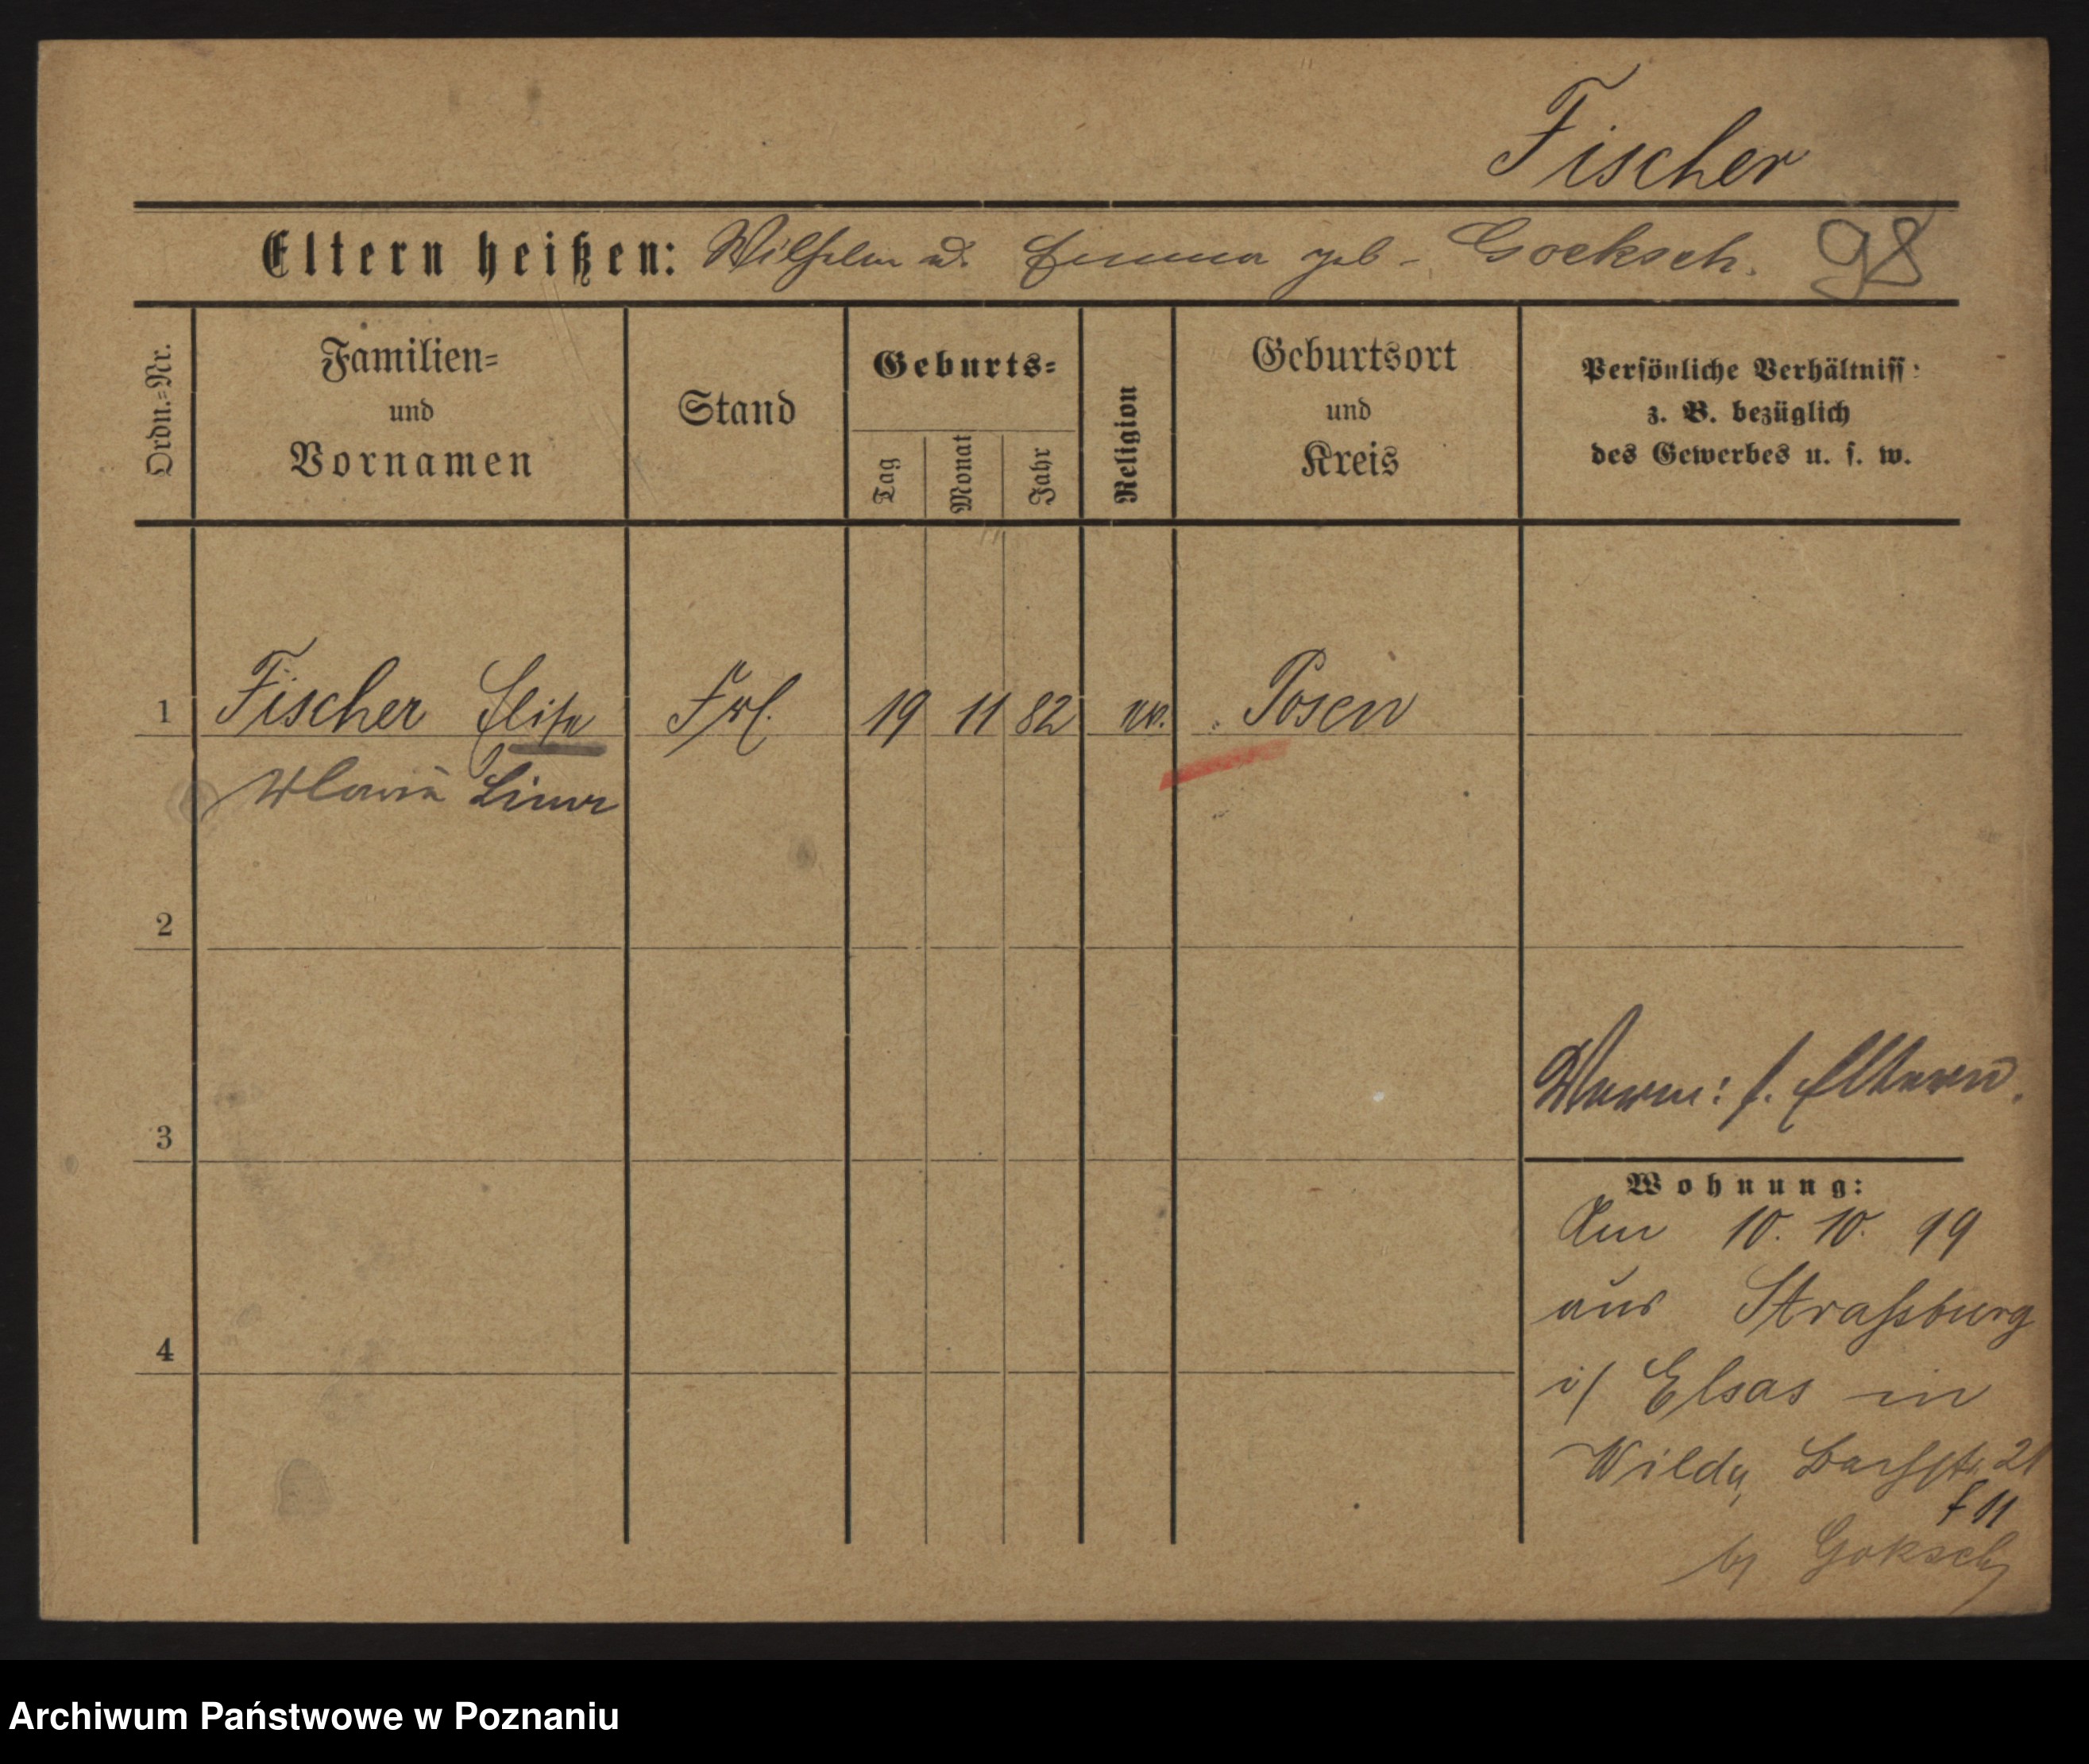 Fischer
Eltern heißen: Wilhelm u. Emma geb. Goeksch. 98
Ordn.=Nr.
Familien=
und
Vornamen
Stand
Geburts=
Tag
Monat
Jahr
Religion
Geburtsort
und
Kreis
Persönliche Verhältniss
z. B. bezüglich
des Gewerbes u. s. w.
1 Fischer Elise Frl. 19 11 82 ev. Posen
2
3
4
f. Eltern.
Wohnung:
Am 10. 10. 99
aus Straßburg
i/ Elsas in
Wilda, Bachstr. 21
b/ Goksch
Archiwum Państwowe w Poznaniu